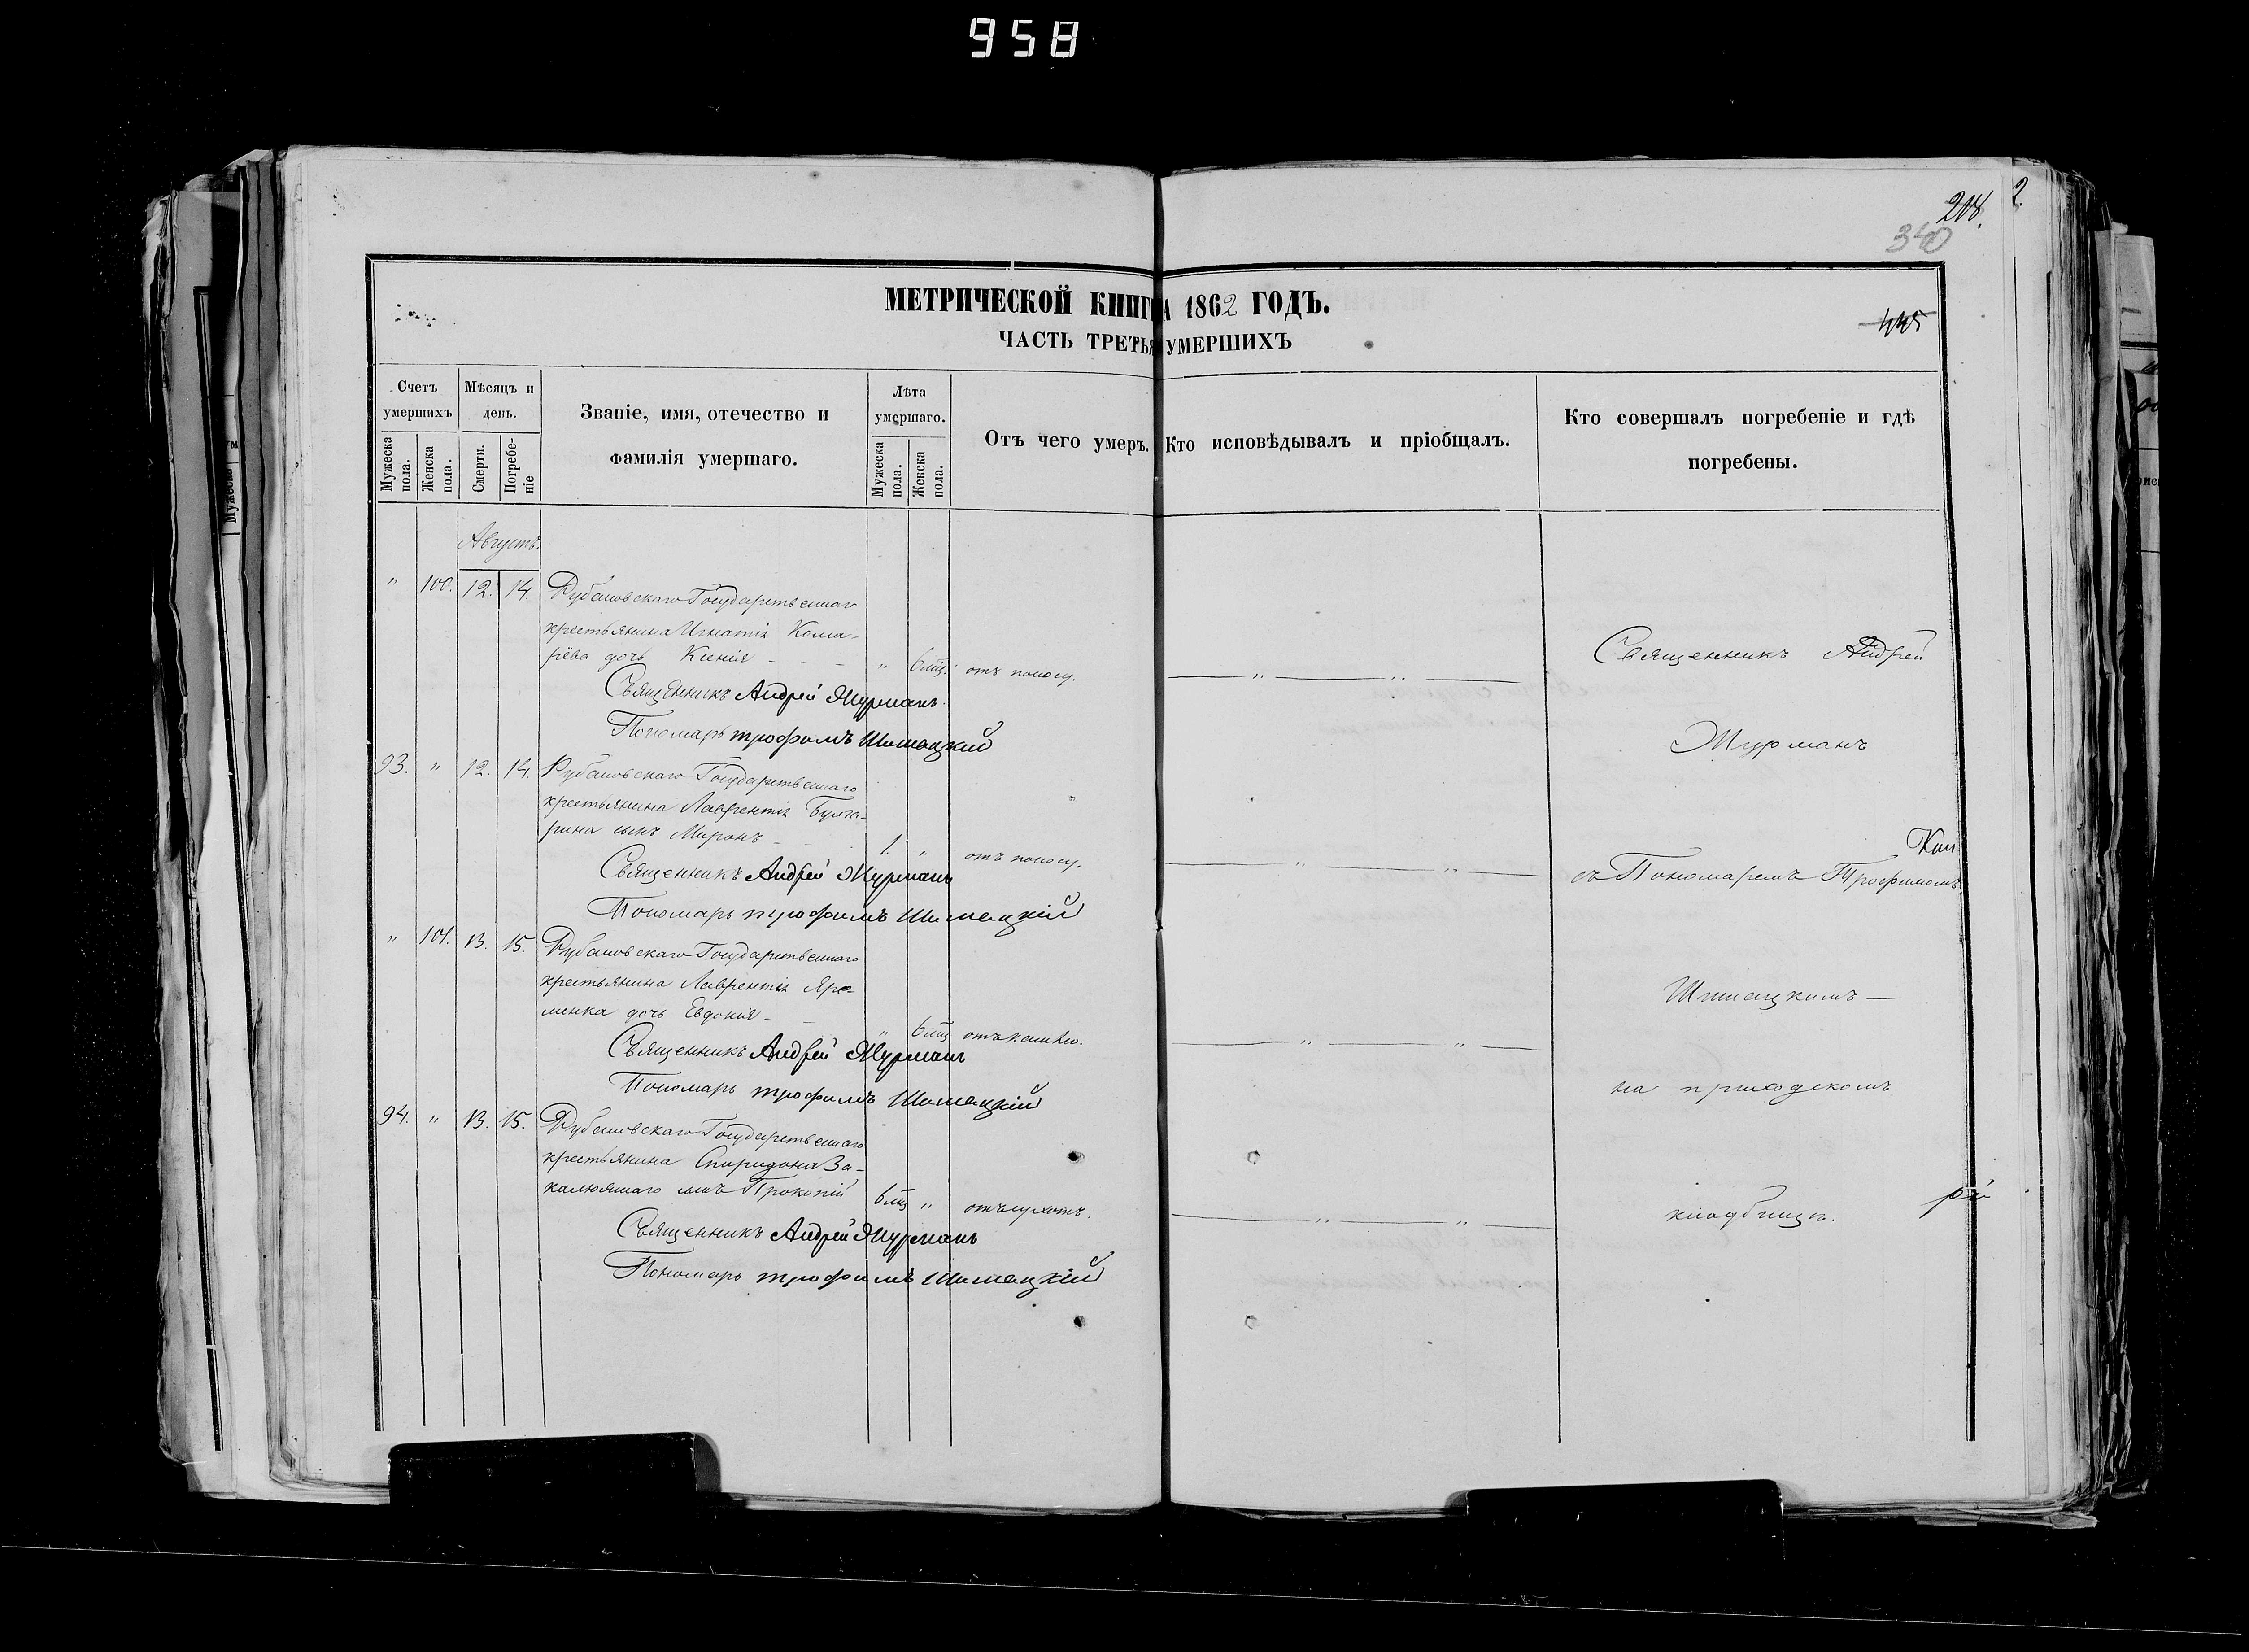 958
218.
2.
340
МЕТРИЧЕСКОЙ КНИГА 1862 ГОДЪ.
445
ЧАСТЬ ТРЕТЬЯ УМЕРШИХЪ
Счетъ умершихъ
Мужеска пола.
Женска пола.
Мѣсяцъ и день.
Смерти.
Погребеніе
Званіе, имя, отечество и
фамилія умершаго.
Лѣта умершаго.
Мужеска пола.
Женска пола.
Отъ чего умеръ.
Кто исповѣдывалъ и пріобщалъ.
Кто совершалъ погребеніе и гдѣ
погребены.
Августъ.
" 100. 12. 14. Рубановскаго Государственнаго
крестьянина Игнатія Кома-
рёва дочь Ксенія - - - " 6 мѣц. отъ поносу. " "
Священникъ Андрей Журманъ.
Пономарь Трофимъ Шимацкій
93. " 12. 14. Рубановскаго Государственнаго
крестьянина Лаврентія Булга-
рина сынъ Миронъ - 1. " отъ поносу. " "
Священникъ Андрей Журманъ
Пономарь Трофимъ Шимацкій
" 101. 13. 15. Рубановскаго Государственнаго
крестьянина Лаврентія Яре-
менка дочь Евдокія - " 6 мѣц отъ кашлю. " "
Священникъ Андрей Журманъ
Пономарь Трофимъ Шимацкій
94. " 13. 15. Рубановскаго Государственнаго
крестьянина Спиридона За-
калюжнаго сынъ Прокопій 6 мѣц " отъ сухотъ. " "
Священникъ Андрей Журманъ
Пономарь Трофимъ Шимацкій
Священникъ Андрей
Журманъ
съ Пономаремъ Трофимомъ
Шимацкимъ —
на приходскомъ
кладбищѣ.